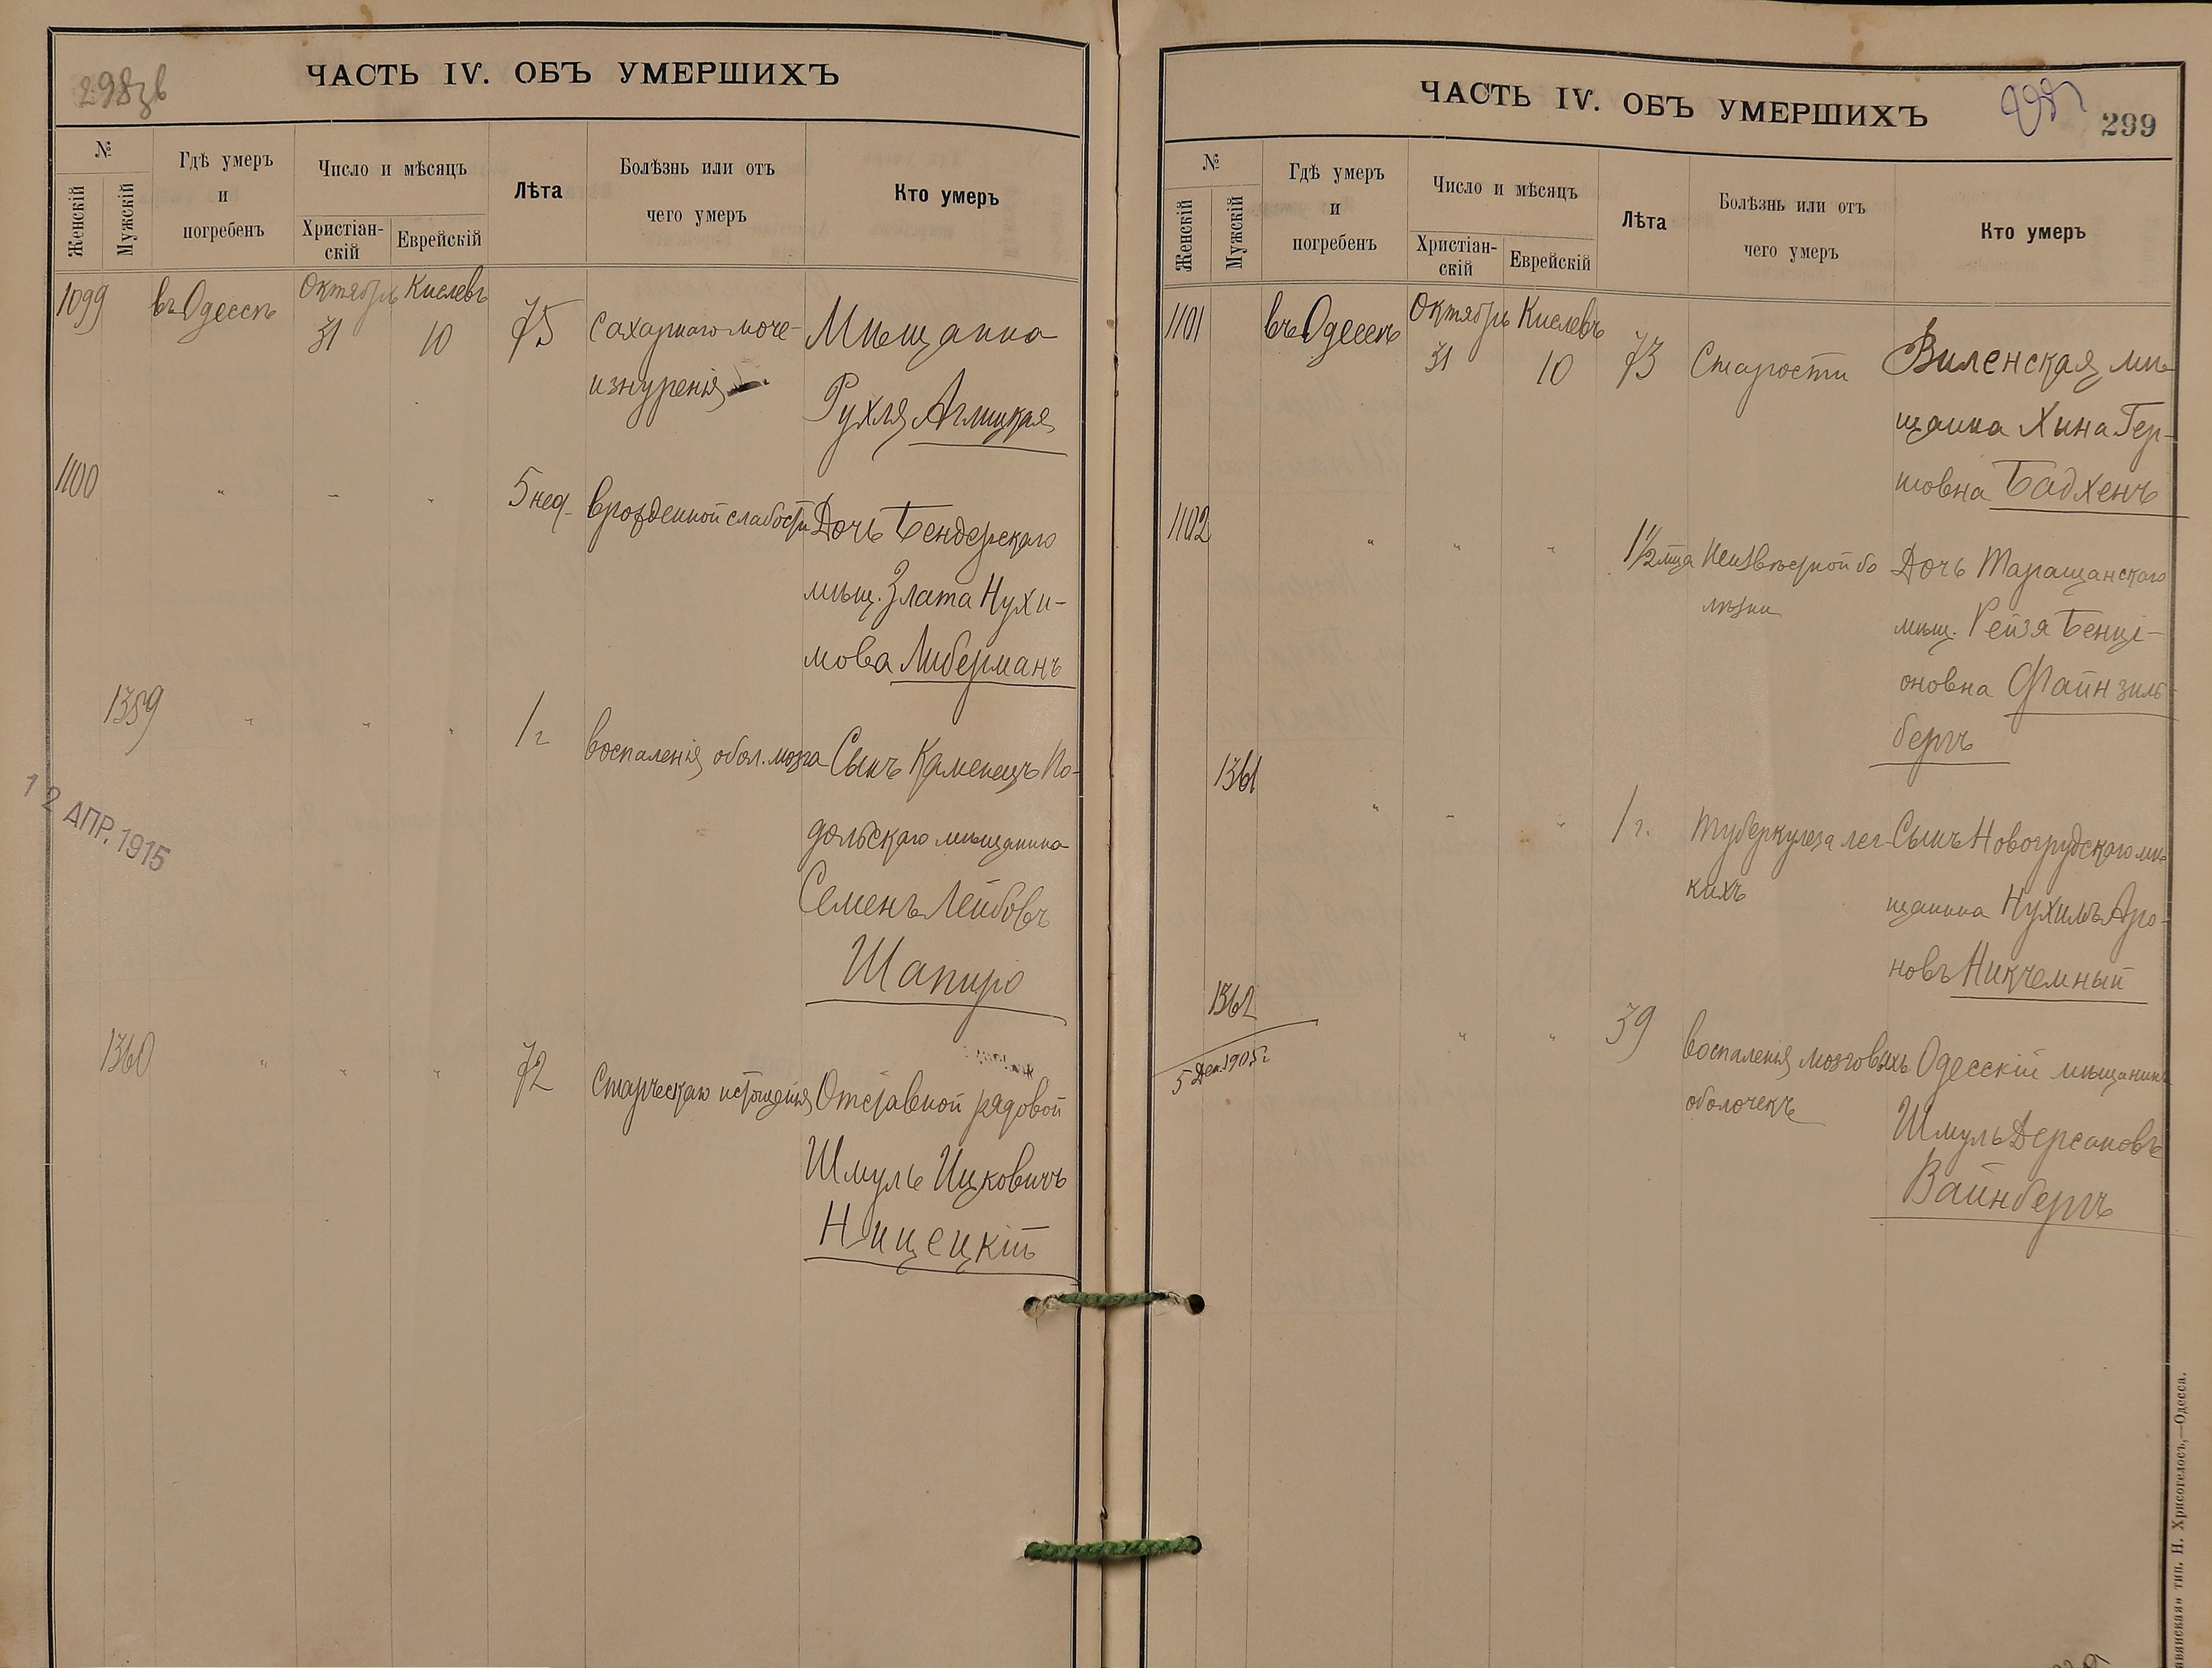 298зв
ЧАСТЬ IV. ОБЪ УМЕРШИХЪ
№
Женскій
Мужскій
Гдѣ умеръ
и
погребенъ
Число и мѣсяцъ
Христіан-
скій
Еврейскій
Лѣта
Болѣзнь или отъ
чего умеръ
Кто умеръ
1099 въ Одессѣ Октябрь 31 Кислевъ 10 75 сахарнаго моче- Мѣщанка
изнуренія Рухля Аглицкая
1100 " " " 5 нед. врожденной слабости Дочь Бендерскаго
мѣщ. Злата Нухи-
мова Либерманъ
1359 " " " 1 г. воспаленія обол. мозга Сынъ Каменецъ По-
дольскаго мѣщанина
Семенъ Лейбовъ
Шапиро
12 АПР. 1915
1360 " " " 72 Старческаго истощенія Отставной рядовой
Шмуль Ицковичъ
Ницецкій
ЧАСТЬ IV. ОБЪ УМЕРШИХЪ
299
№
Женскій
Мужскій
Гдѣ умеръ
и
погребенъ
Число и мѣсяцъ
Христіан-
скій
Еврейскій
Лѣта
Болѣзнь или отъ
чего умеръ
Кто умеръ
1101 въ Одессѣ Октябрь 31 Кислевъ 10 73 Старости Виленская мѣ-
щанка Хына Гер-
шовна Бадхенъ
1102 " " " 1½ м-ца Неизвѣстной бо Дочь Таращанскаго
лѣзни мѣщ. Рейзя Бенці-
оновна Файнзиль-
бергъ
1361 " " " 1 г. Туберкулеза лег- Сынъ Новогрудскаго мѣ-
кихъ щанина Нухимъ Аро-
новъ Никчемный
1362 " " 39 воспаленія мозговыхъ Одесскій мѣщанинъ
5 Дек. 1905 г. оболочекъ Шмуль Дерсановъ
Вайнбергъ
тип. Н. Хрисогелосъ,—Одесса.